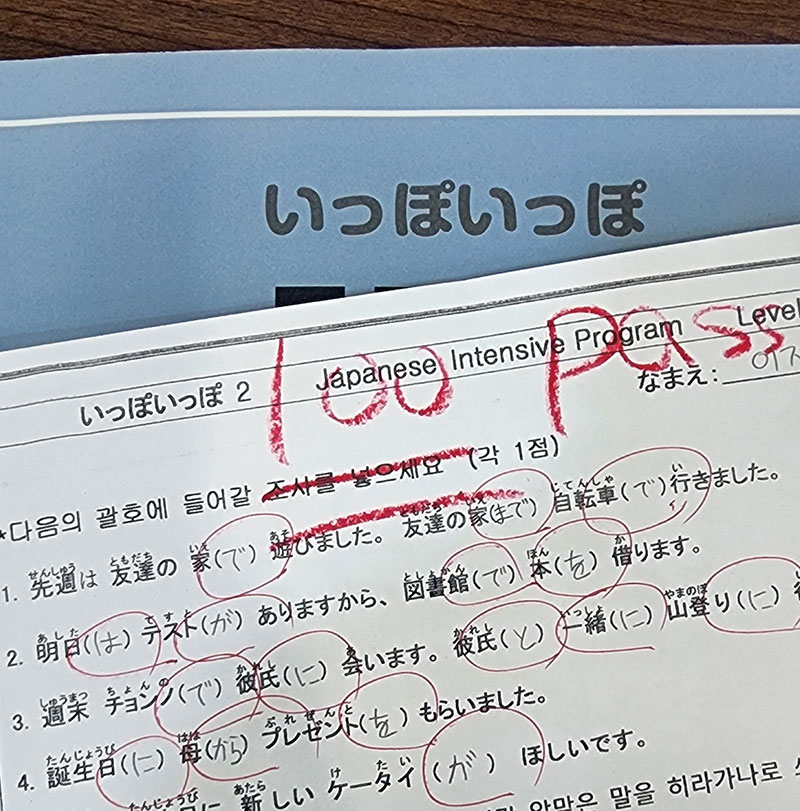 いっぽいっぽ
いっぽいっぽ 2 Japanese Intensive Program Level
100 pass
なまえ:
*다음의 괄호에 들어갈 조사를 넣으세요 (각 1점)
せんしゅう ともだち いえ あそ ともだち いえ じてんしゃ い
1. 先週は 友達の 家(で) 遊びました。 友達の家(まで) 自転車(で)行きました。
あした てすと としょかん ほん か
2. 明日(は) テスト(が) ありますから、 図書館(で) 本(を) 借ります。
しゅうまつ ちょんの かれし あ かれし いっしょ やまのぼ
3. 週末 チョンノ(で) 彼氏(に) 会います。 彼氏(と) 一緒(に) 山登り(に)
たんじょうび はは ぷれぜんと
4. 誕生日(に) 母(から) プレゼント(を) もらいました。
たんじょうび あたら けたい
に 新しい ケータイ (が) ほしいです。
알맞은 말을 히라가나로